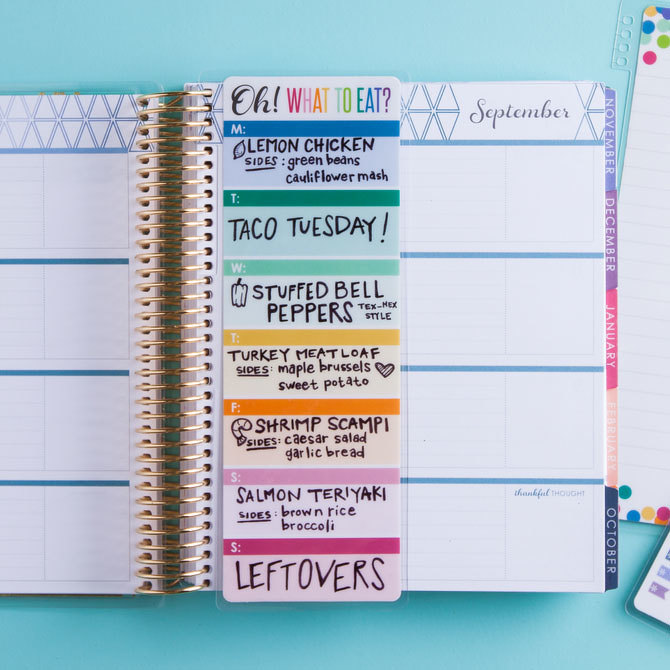 Oh! WHAT TO EAT?
M:
LEMON CHICKEN
SIDES: green beans
cauliflower mash
T:
TACO TUESDAY!
W:
STUFFED BELL
PEPPERS TEX-MEX
STYLE
T:
TURKEY MEATLOAF
SIDES: maple brussels
sweet potato
F:
SHRIMP SCAMPI
SIDES: caesar salad
garlic bread
S:
SALMON TERIYAKI
SIDES: brown rice
broccoli
S:
LEFTOVERS
September
thankful THOUGHT
NOVEMBER
DECEMBER
JANUARY
FEBRUARY
OCTOBER